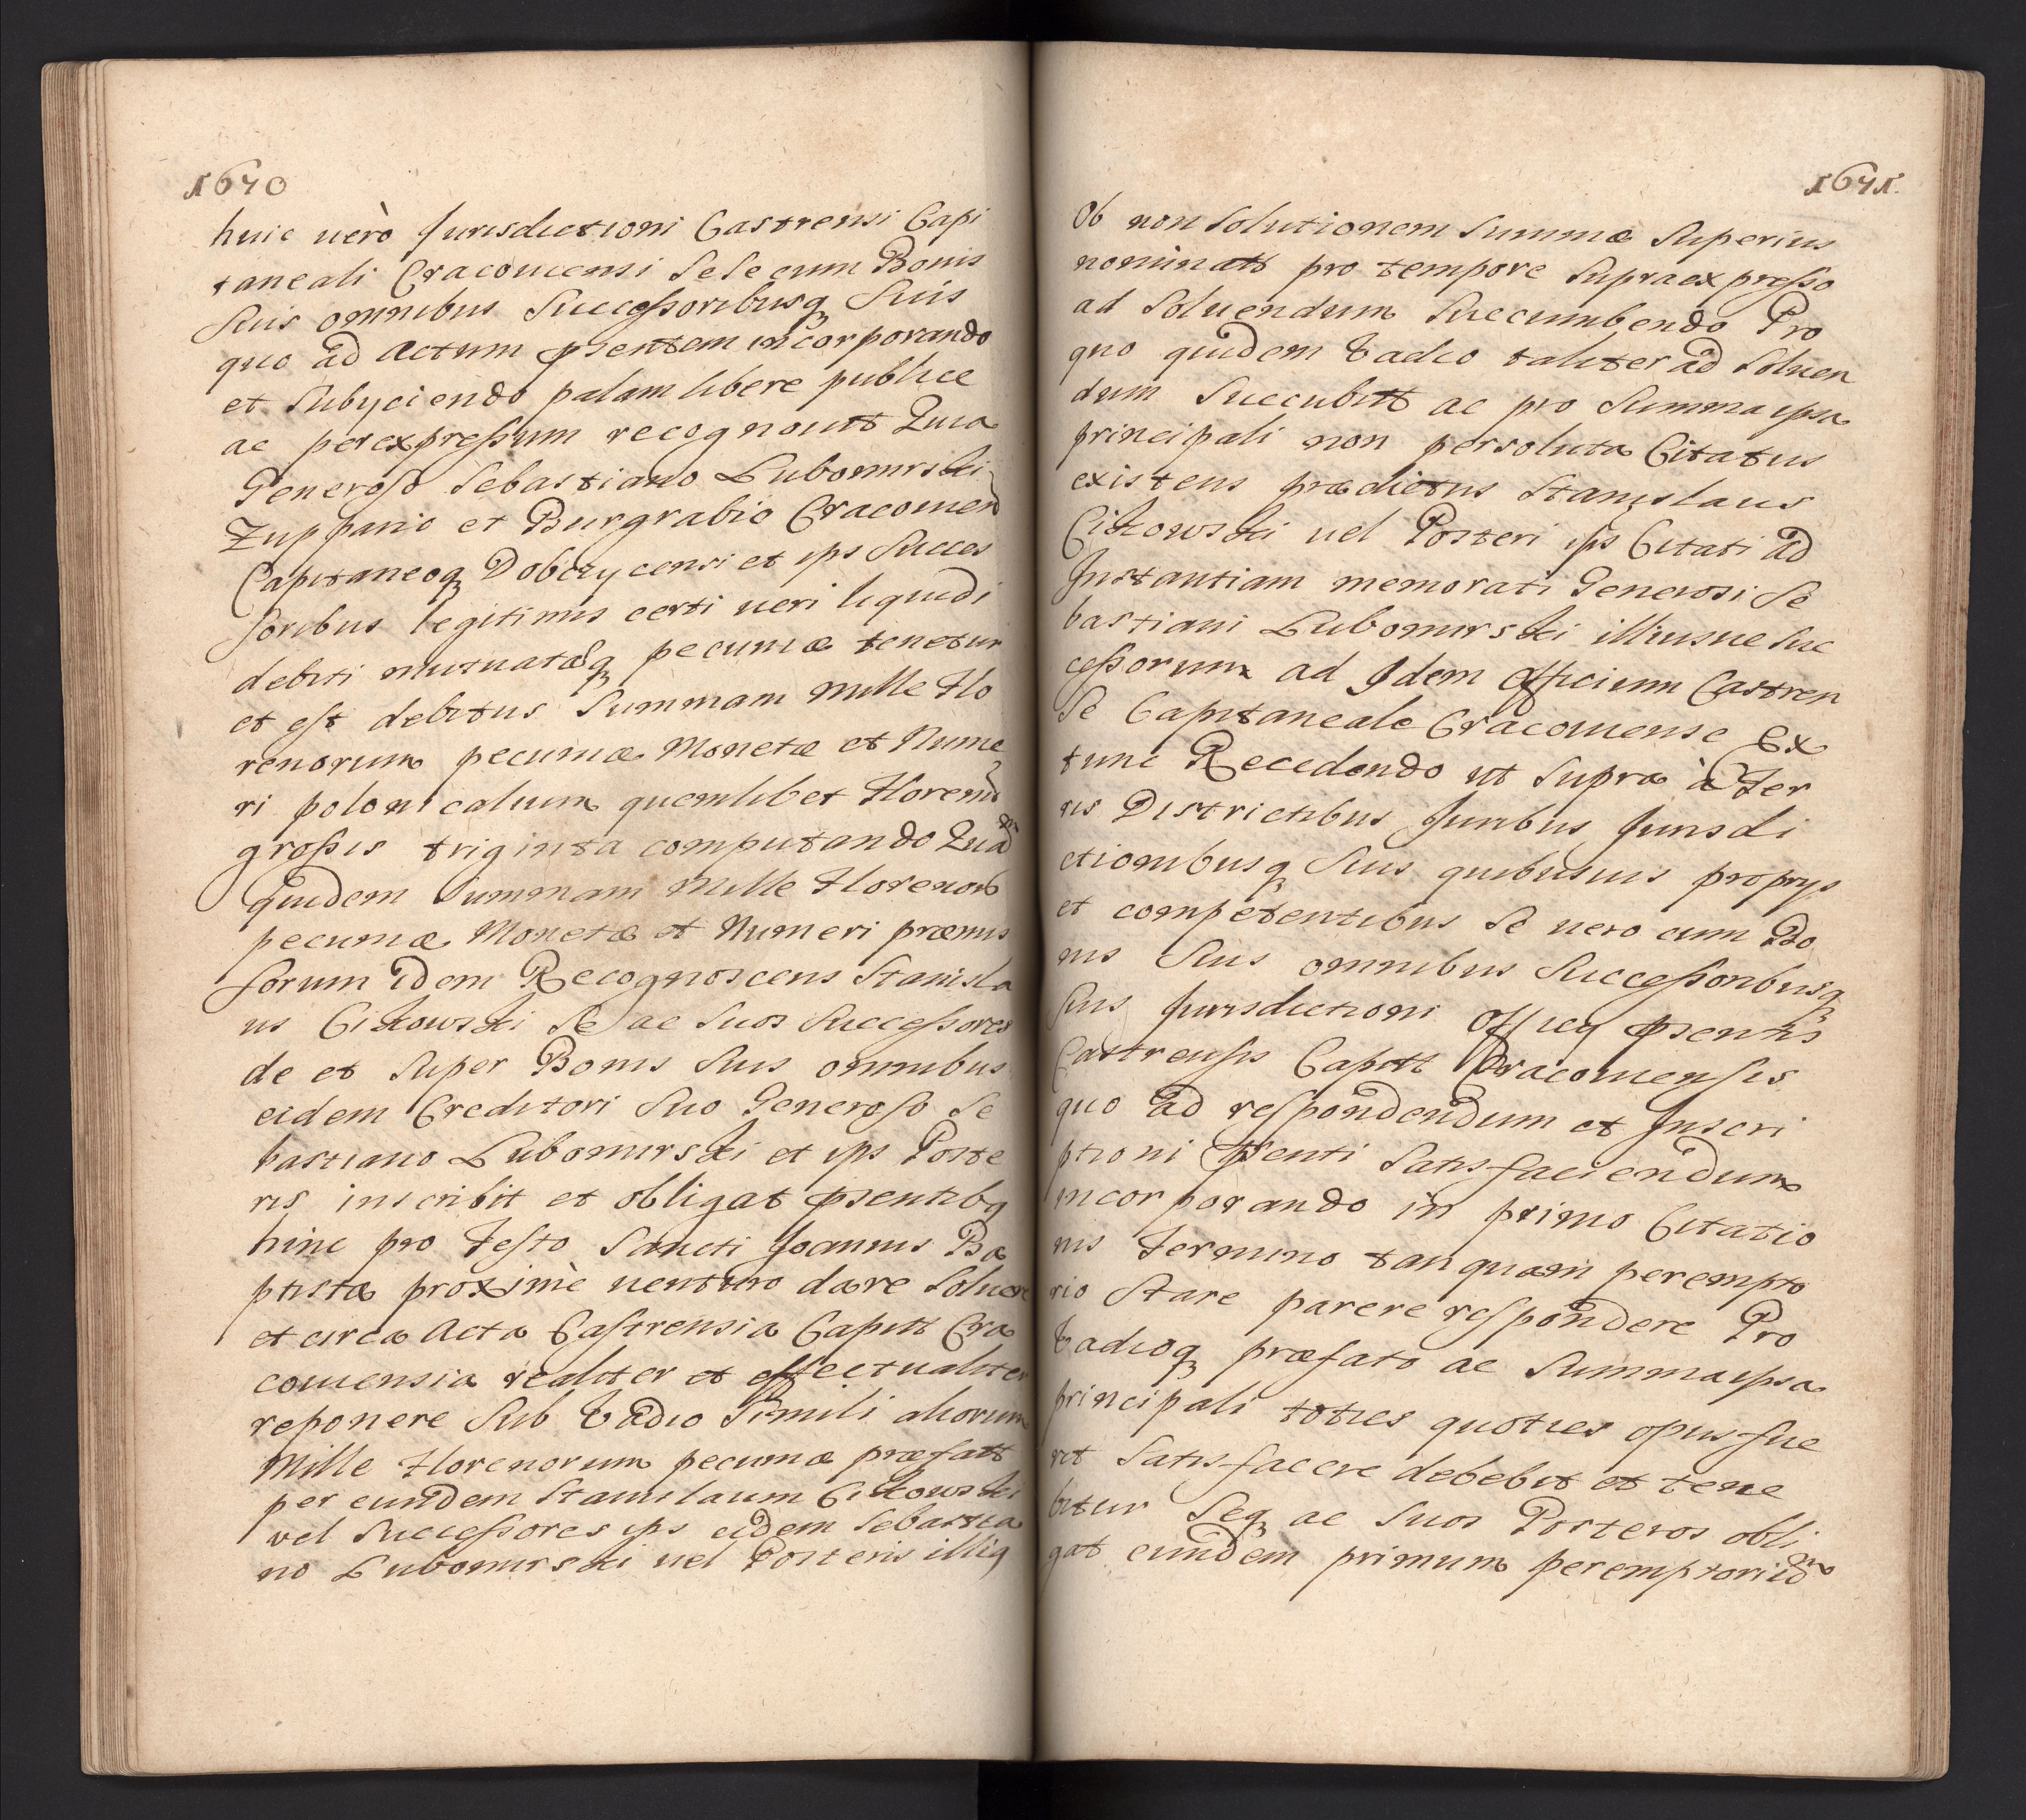 1670
huic uerò Jurisdictioni Castrensi Capi
taneali Cracouiensi sese cum Bonis
suis omnibus Successoribusq suis
quo ad Actum psentem incorporando
et subyciendo palam libere publice
ac per expressum recognouit Quia
Generoso Sebastiano Lubomirski
Zuppario et Burgrabio Cracouien
Capitaneoq Dobczycensi et ips Succes
soribus legitimis certi ueri liquidi
debiti mutuatæq pecuniæ tenetur
et est debitus Summam mille Flo
renorum pecuniæ Monetæ et Nume
ri polonicalium quemlibet Florenu
grossis triginta computando Quā
quidem Summam Mille Florenon
pecuniæ Monetæ et Numeri præmis
sorum idem Recognoscens Stanisla
us Cikowski se ac suos Successores
de et super Bonis suis omnibus
eidem Creditori suo Generoso Se
bastiano Lubomirski et ips Poste
ris inscribit et obligat psentibq
hinc pro Festo Sancti Joannis Ba
ptistæ proximè uenturo dare soluere
et circa Acta Castrensia Capitt Cra
couiensia realiter et effectualiter
reponere sub Vadio simili aliorum
Mille Florenorum pecuniæ præfatt
per eundem Stanislaum Cikowski
vel Successores ips eidem Sebastia
no Lubomirski uel Posteris illiq
1671.
Ob non solutionem summæ superius
nominatt pro tempore supraexpresso
ad soluendum succumbendo Pro
quo quidem Vadio taliter ad soluen
dum succubitt ac pro Summa ipsa
principali non persoluta Citatus
existens prædictus Stanislaus
Cikowski uel Posteri ips Citati ad
Instantiam memorati Generosi Se
bastiani Lubomirski illiusue Suc
cessorum ad Idem Officium Castren
se Capitaneale Cracouiense Ex
tunc Recedendo ut supra à Ter
ris Districtibus Juribus Jurisdi
ctionibusq suis quibusuis proprys
et competentibus se uero cum Bo
nis suis omnibus Successoribusq
suis Jurisdictioni Officy psentis
Castrensis Capitt Cracouiensis
quo ad respondendum et Inscri
ptioni psenti satisfaciendum
incorporando in primo Citatio
nis Termino tanquam perempto
rio stare parere respondere Pro
Vadioq præfato ac Summa ipsa
principali toties quoties opus fue
rit satisfacere debebit et tene
bitur Seq ac suos Posteros obli
gat eundem primum peremptoriū